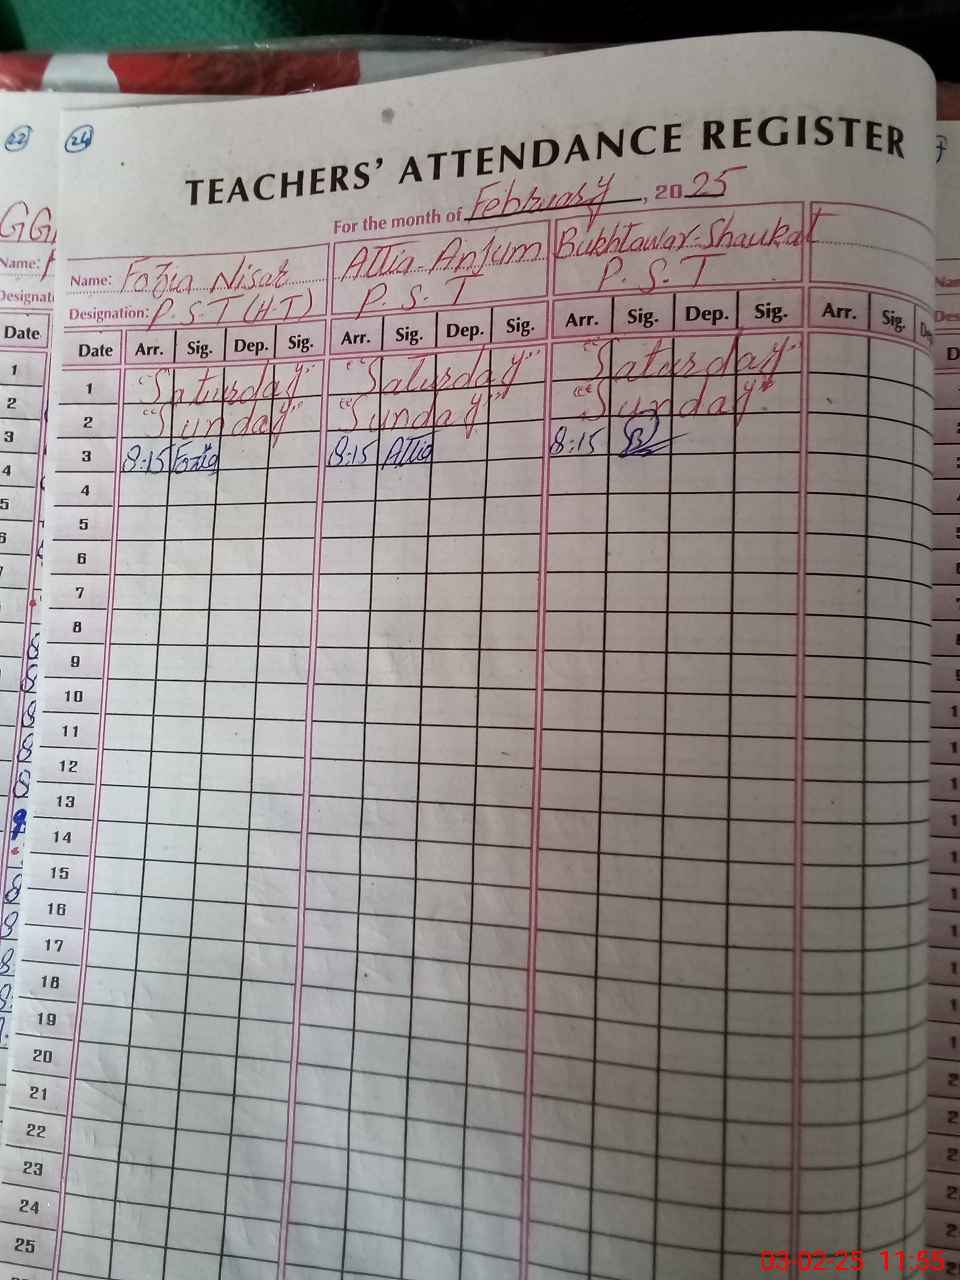 22
24
TEACHERS' ATTENDANCE REGISTER
For the month of February, 2025
GG
Name: Fozia Nisar Attia Anjum Bukhtawar Shaukat
Designation: P.S.T (H.T) P.S.T P.S.T
Date Arr. Sig. Dep. Sig. Arr. Sig. Dep. Sig. Arr. Sig. Dep. Sig. Arr. Sig.
1 "Saturday" "Saturday" "Saturday"
2 "Sunday" "Sunday" "Sunday"
3 8:15 Fozia 8:15 Attia 8:15
4
5
6
7
8
9
10
11
12
13
14
15
16
17
18
19
20
21
22
23
24
25
Name:
Date
1
2
3
4
5
6
03-02-25 11:55